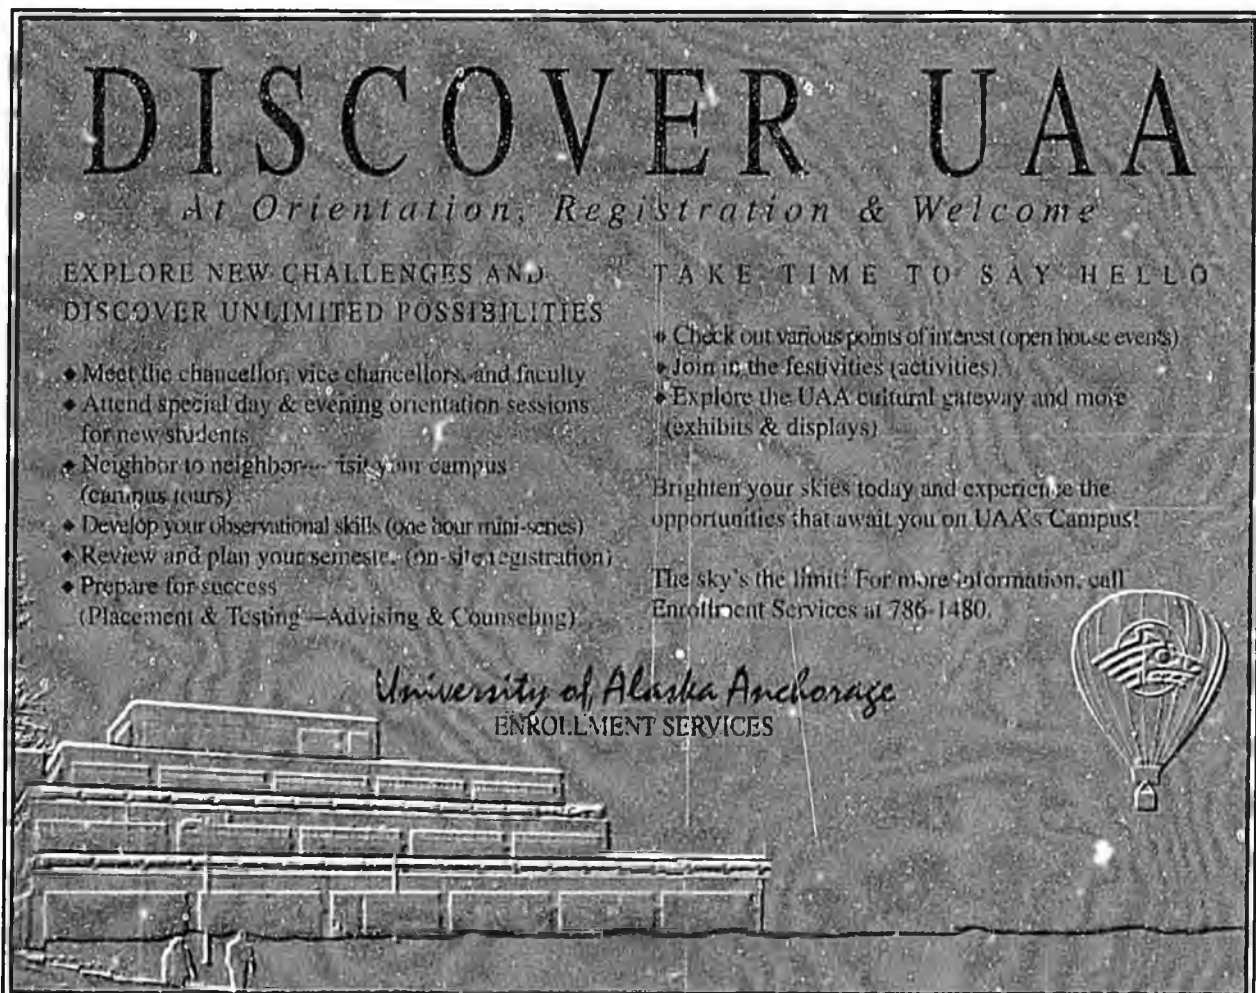 DISCOVER UAA
At Orientation, Registration & Welcome
EXPLORE NEW CHALLENGES AND
DISCOVER UNLIMITED POSSIBILITIES
◆ Meet the chancellor, vice chancellors, and faculty
◆ Attend special day & evening orientation sessions
for new students
◆ Neighbor to neighbor— your campus
(campus tours)
◆ Develop your observational skills (one hour mini-series)
◆ Review and plan your semeste. (on-site registration)
◆ Prepare for success
(Placement & Testing—Advising & Counseling)
TAKE TIME TO SAY HELLO
◆ Check out various points of interest (open house events)
◆ Join in the festivities (activities)
◆ Explore the UAA cultural gateway and more
(exhibits & displays)
Brighten your skies today and experience the
opportunities that await you on UAA's Campus!
The sky's the limit! For more information, call
Enrollment Services at 786-1480.
University of Alaska Anchorage
ENROLLMENT SERVICES